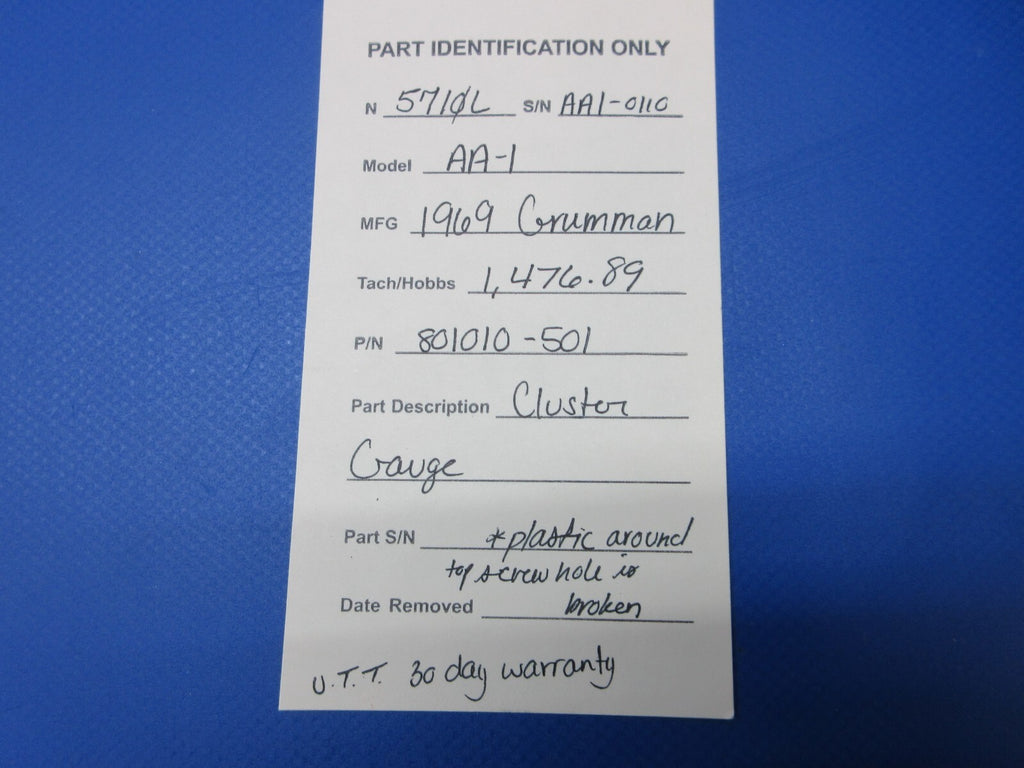 PART IDENTIFICATION ONLY
N 5710L S/N AA1-0110
Model AA-1
MFG 1969 Grumman
Tach/Hobbs 1,476.89
P/N 801010-501
Part Description Cluster
Gauge
Part S/N *plastic around
top screw hole is
Date Removed broken
U.T.T. 30 day warranty